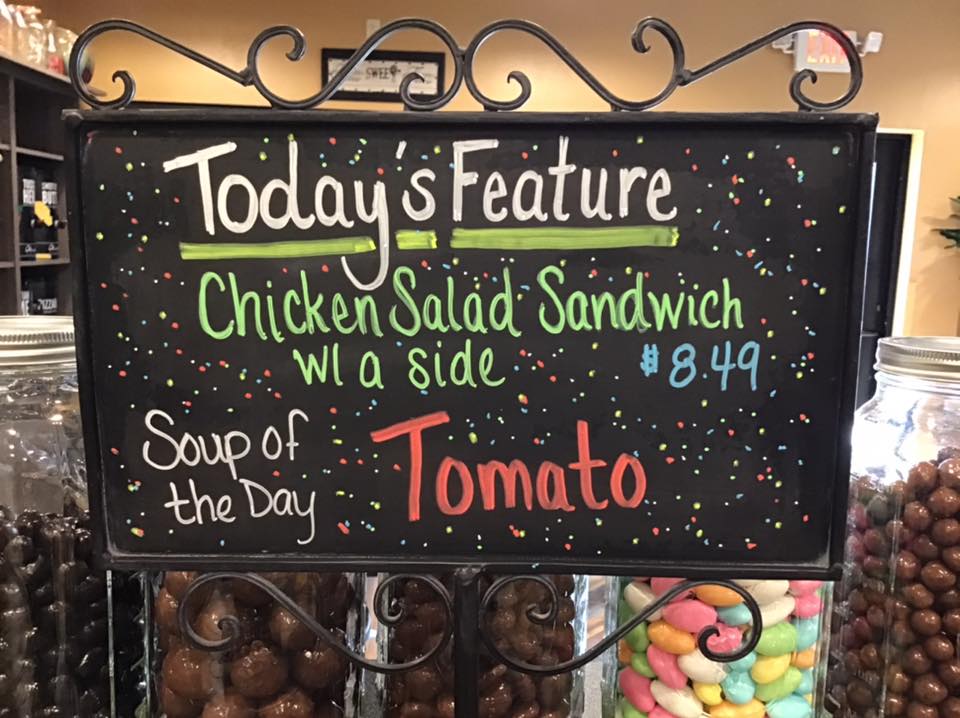 SWEET
EXIT
Today's Feature
Chicken Salad Sandwich
w/ a side $8.49
Soup of
the Day
Tomato